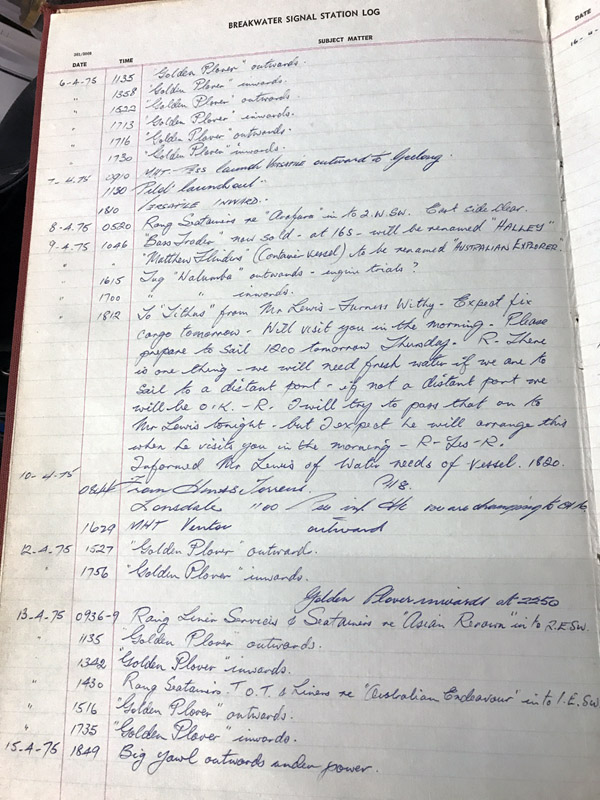 BREAKWATER SIGNAL STATION LOG
SUBJECT MATTER
DATE TIME
DATE
6-4-75 1135 "Golden Plover" outwards.
" 1358 "Golden Plover" inwards.
" 1522 "Golden Plover" outwards.
" 1713 "Golden Plover" inwards.
" 1716 "Golden Plover" outwards.
" 1730 "Golden Plover" inwards.
7-4-75 0910 MHT launch VERSATILE outward to Geelong.
1130 Pilot launch out.
1810 VERSATILE INWARD.
8-4-75 0520 Rang Seatainers re "Arafura" in to 2.W.SW. East side clear.
9-4-75 1046 "Bass Trader" now sold - at 16S - will be renamed "HALLEY"
" "Matthew Flinders (Container vessel) to be renamed "AUSTRALIAN EXPLORER"
" 1615 Tug "Nalumba" outwards - engine trials?
" 1700 " " inwards.
" 1812 To "Tithas" from Mr Lewis - Furness Withy - Expect fix
cargo tomorrow - Will visit you in the morning - Please
prepare to sail 1200 tomorrow Thursday - R - There
is one thing - we will need fresh water if we are to
sail to a distant port - if not a distant port we
will be O.K. - R. I will try to pass that on to
Mr Lewis tonight - but I expect he will arrange this
when he visits you in the morning - R - Yes - R.
Informed Mr Lewis of Water needs of vessel. 1820.
10-4-75
From Torrens.
Lonsdale you are changing to
1629 MHT Ventor outward
12-4-75 1527 "Golden Plover" outward.
" 1756 "Golden Plover" inwards.
Golden Plover inwards at 2250
13-4-75 0936-9 Rang Liner Services & Seatainers re "Asian Renown" in to 2.E.SW.
" 1135 "Golden Plover" outwards.
1342 "Golden Plover" inwards.
" 1430 Rang Seatainers. T.O.T. & Liners re "Australian Endeavour" in to 1.E.SW
" 1516 "Golden Plover" outwards.
" 1735 "Golden Plover" inwards.
15-4-75 1849 Big yawl outwards under power.